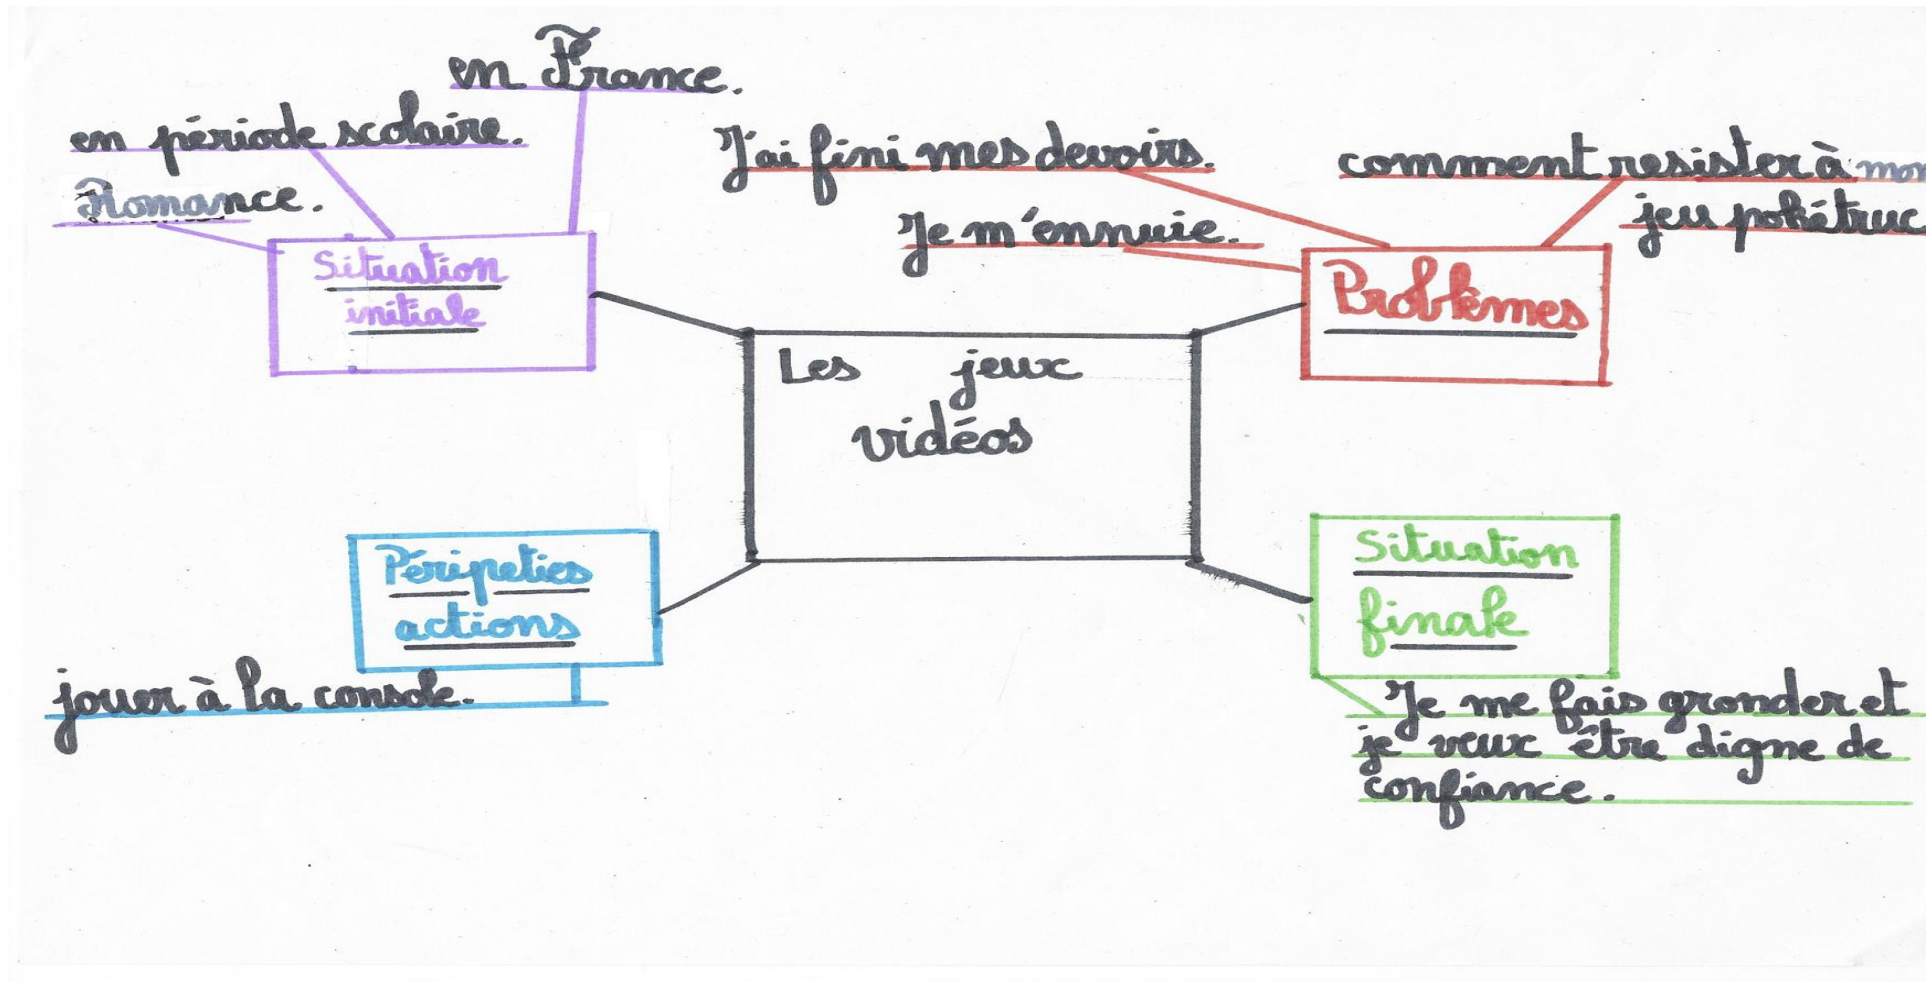 en France.
en période scolaire.
Romance.
Situation
initiale
J'ai fini mes devoirs.
Je m'ennuie.
comment resister à mon
jeu pokétruc
Problèmes
Les jeux
vidéos
Péripeties
actions
jouer à la console.
Situation
finale
Je me fais gronder et
je veux être digne de
confiance.